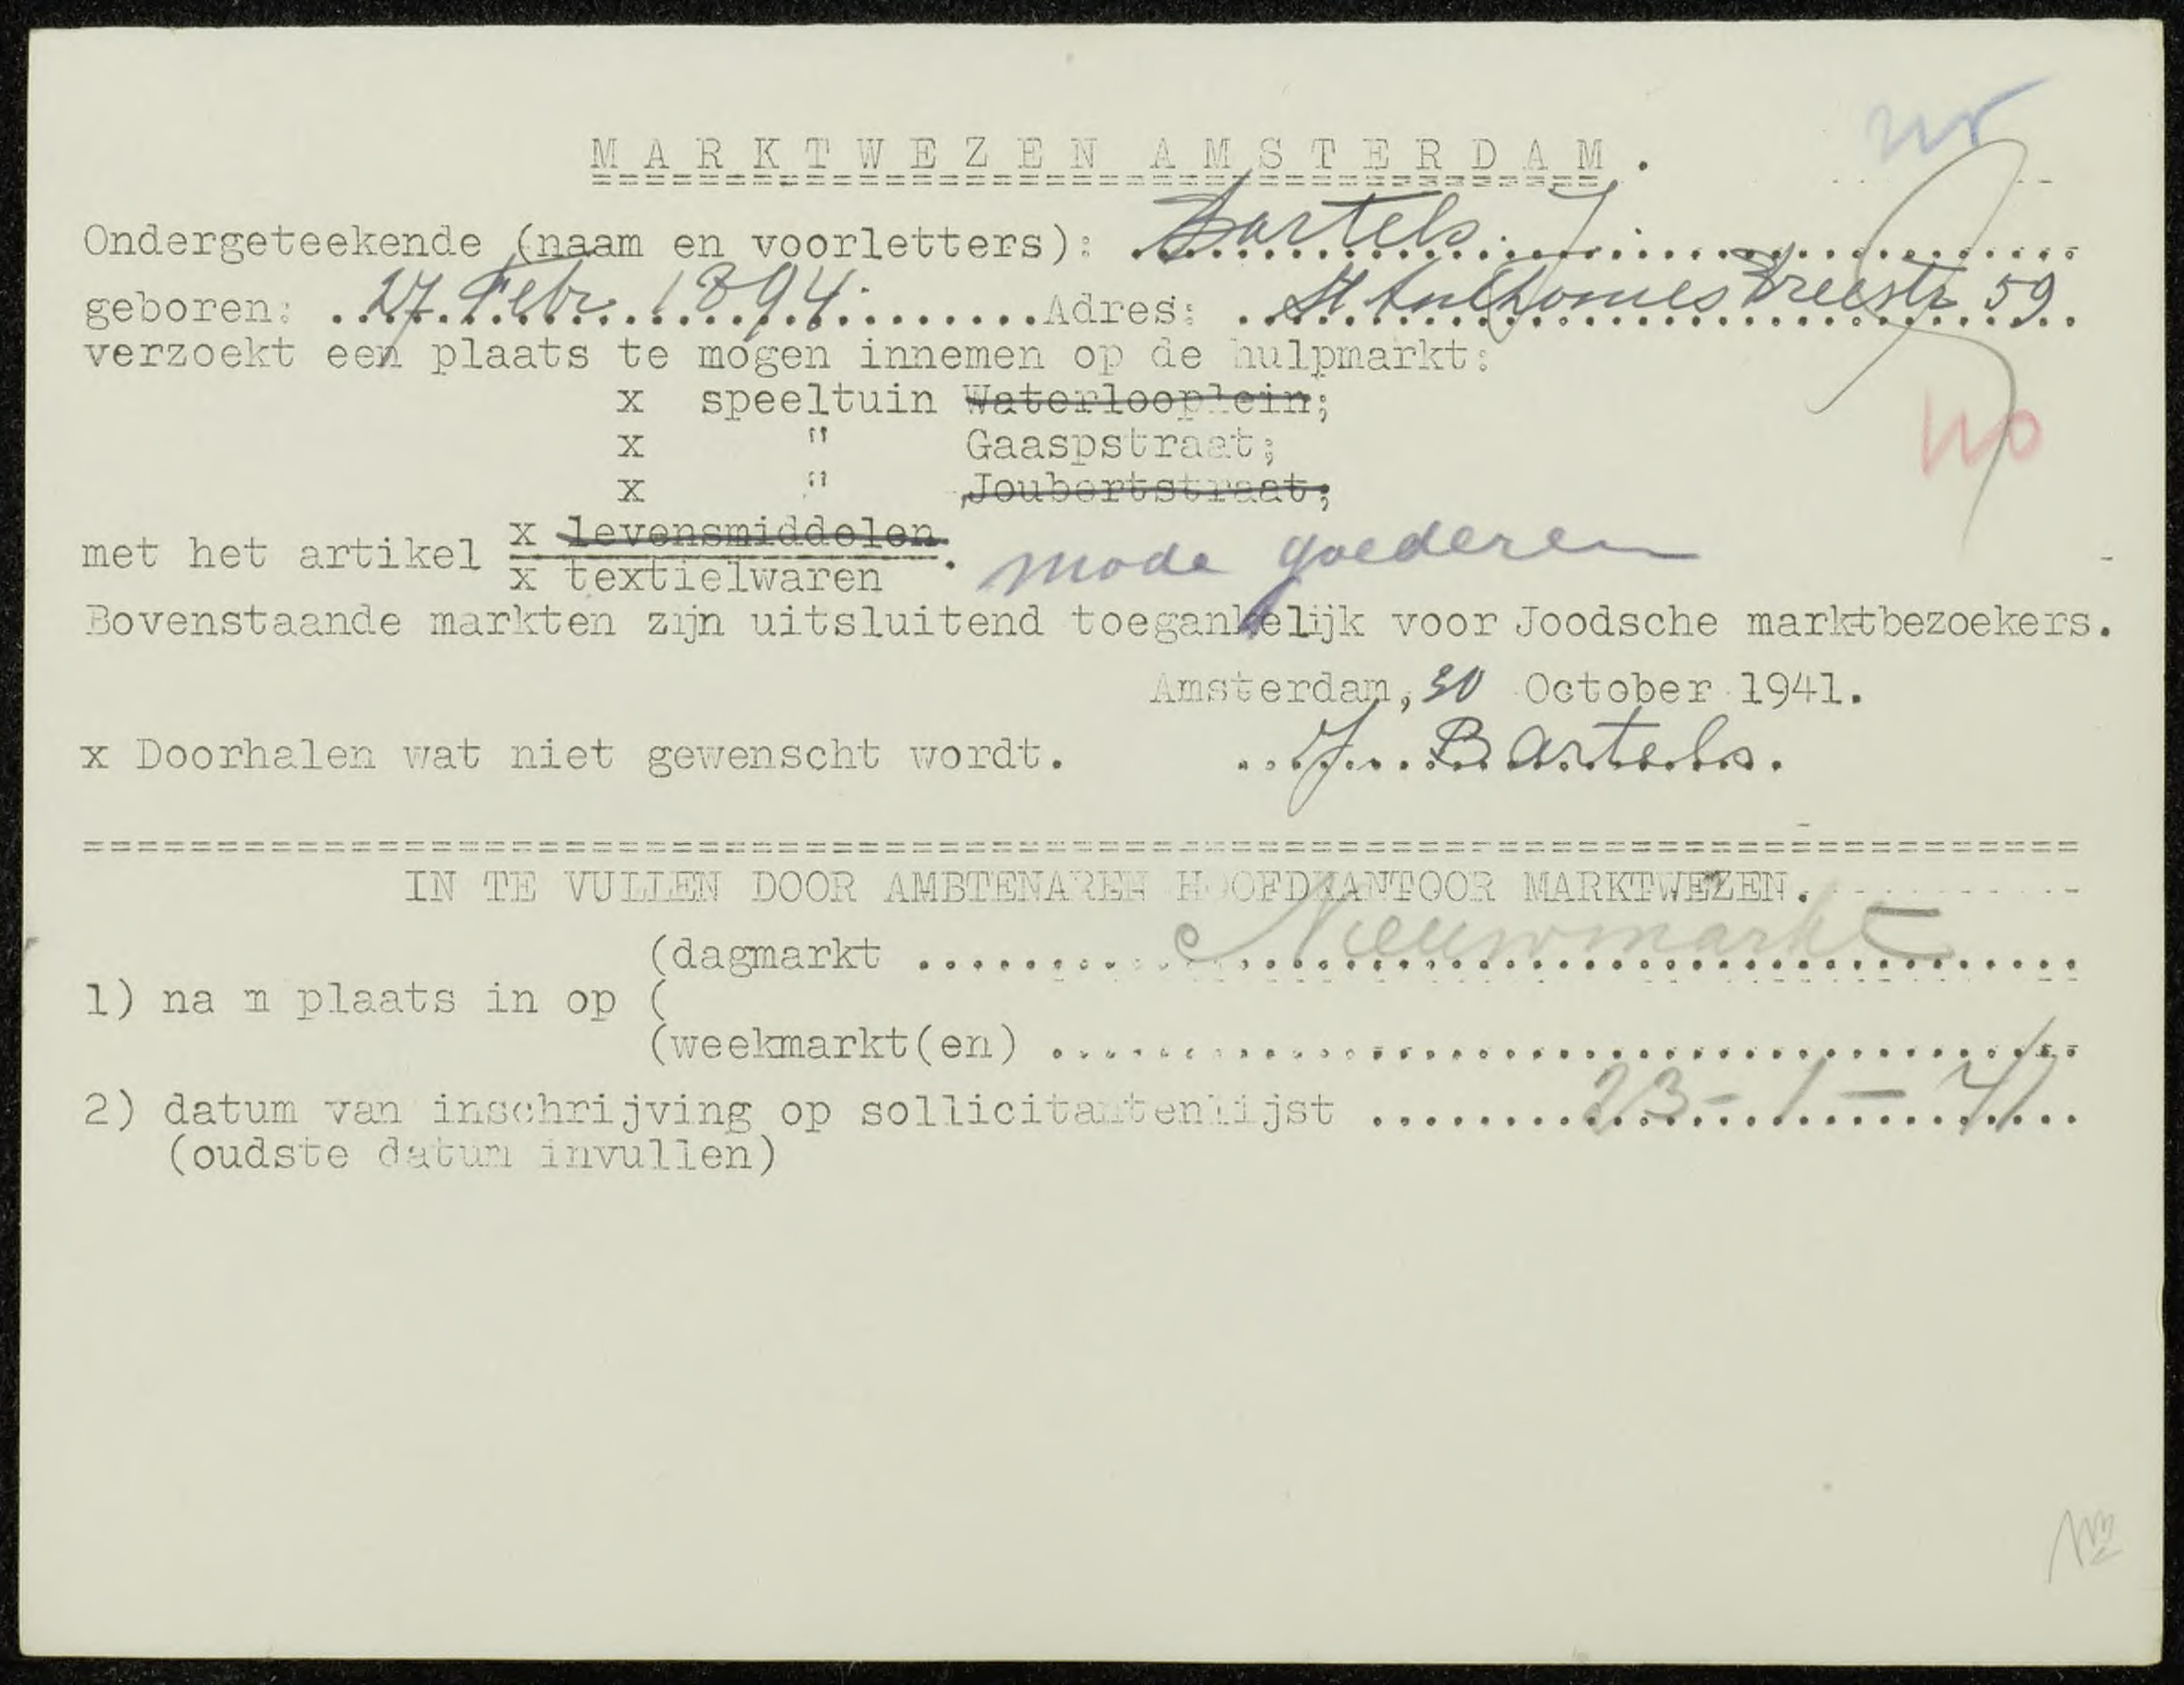 MARKTWEZEN AMSTERDAM.
Ondergeteekende (naam en voorletters): Bartels. J.
geboren: 27 Febr. 1894. Adres: St Anthonies Breestr 59
verzoekt een plaats te mogen innemen op de hulpmarkt:
x speeltuin Waterlooplein;
x " Gaaspstraat;
x " Joubertstraat;
met het artikel x levensmiddelen.
x textielwaren mode goederen
Bovenstaande markten zijn uitsluitend toegankelijk voor Joodsche marktbezoekers.
Amsterdam, 30 October 1941.
x Doorhalen wat niet gewenscht wordt. J. Bartels.
IN TE VULLEN DOOR AMBTENAREN HOOFDKANTOOR MARKTWEZEN.
(dagmarkt Nieuwmarkt
1) na m plaats in op (
(weekmarkt(en)
2) datum van inschrijving op sollicitantenlijst 23-1-41
(oudste datum invullen)